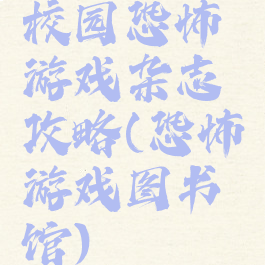 校园恐怖
游戏杂志
攻略(恐怖
游戏图书
馆)